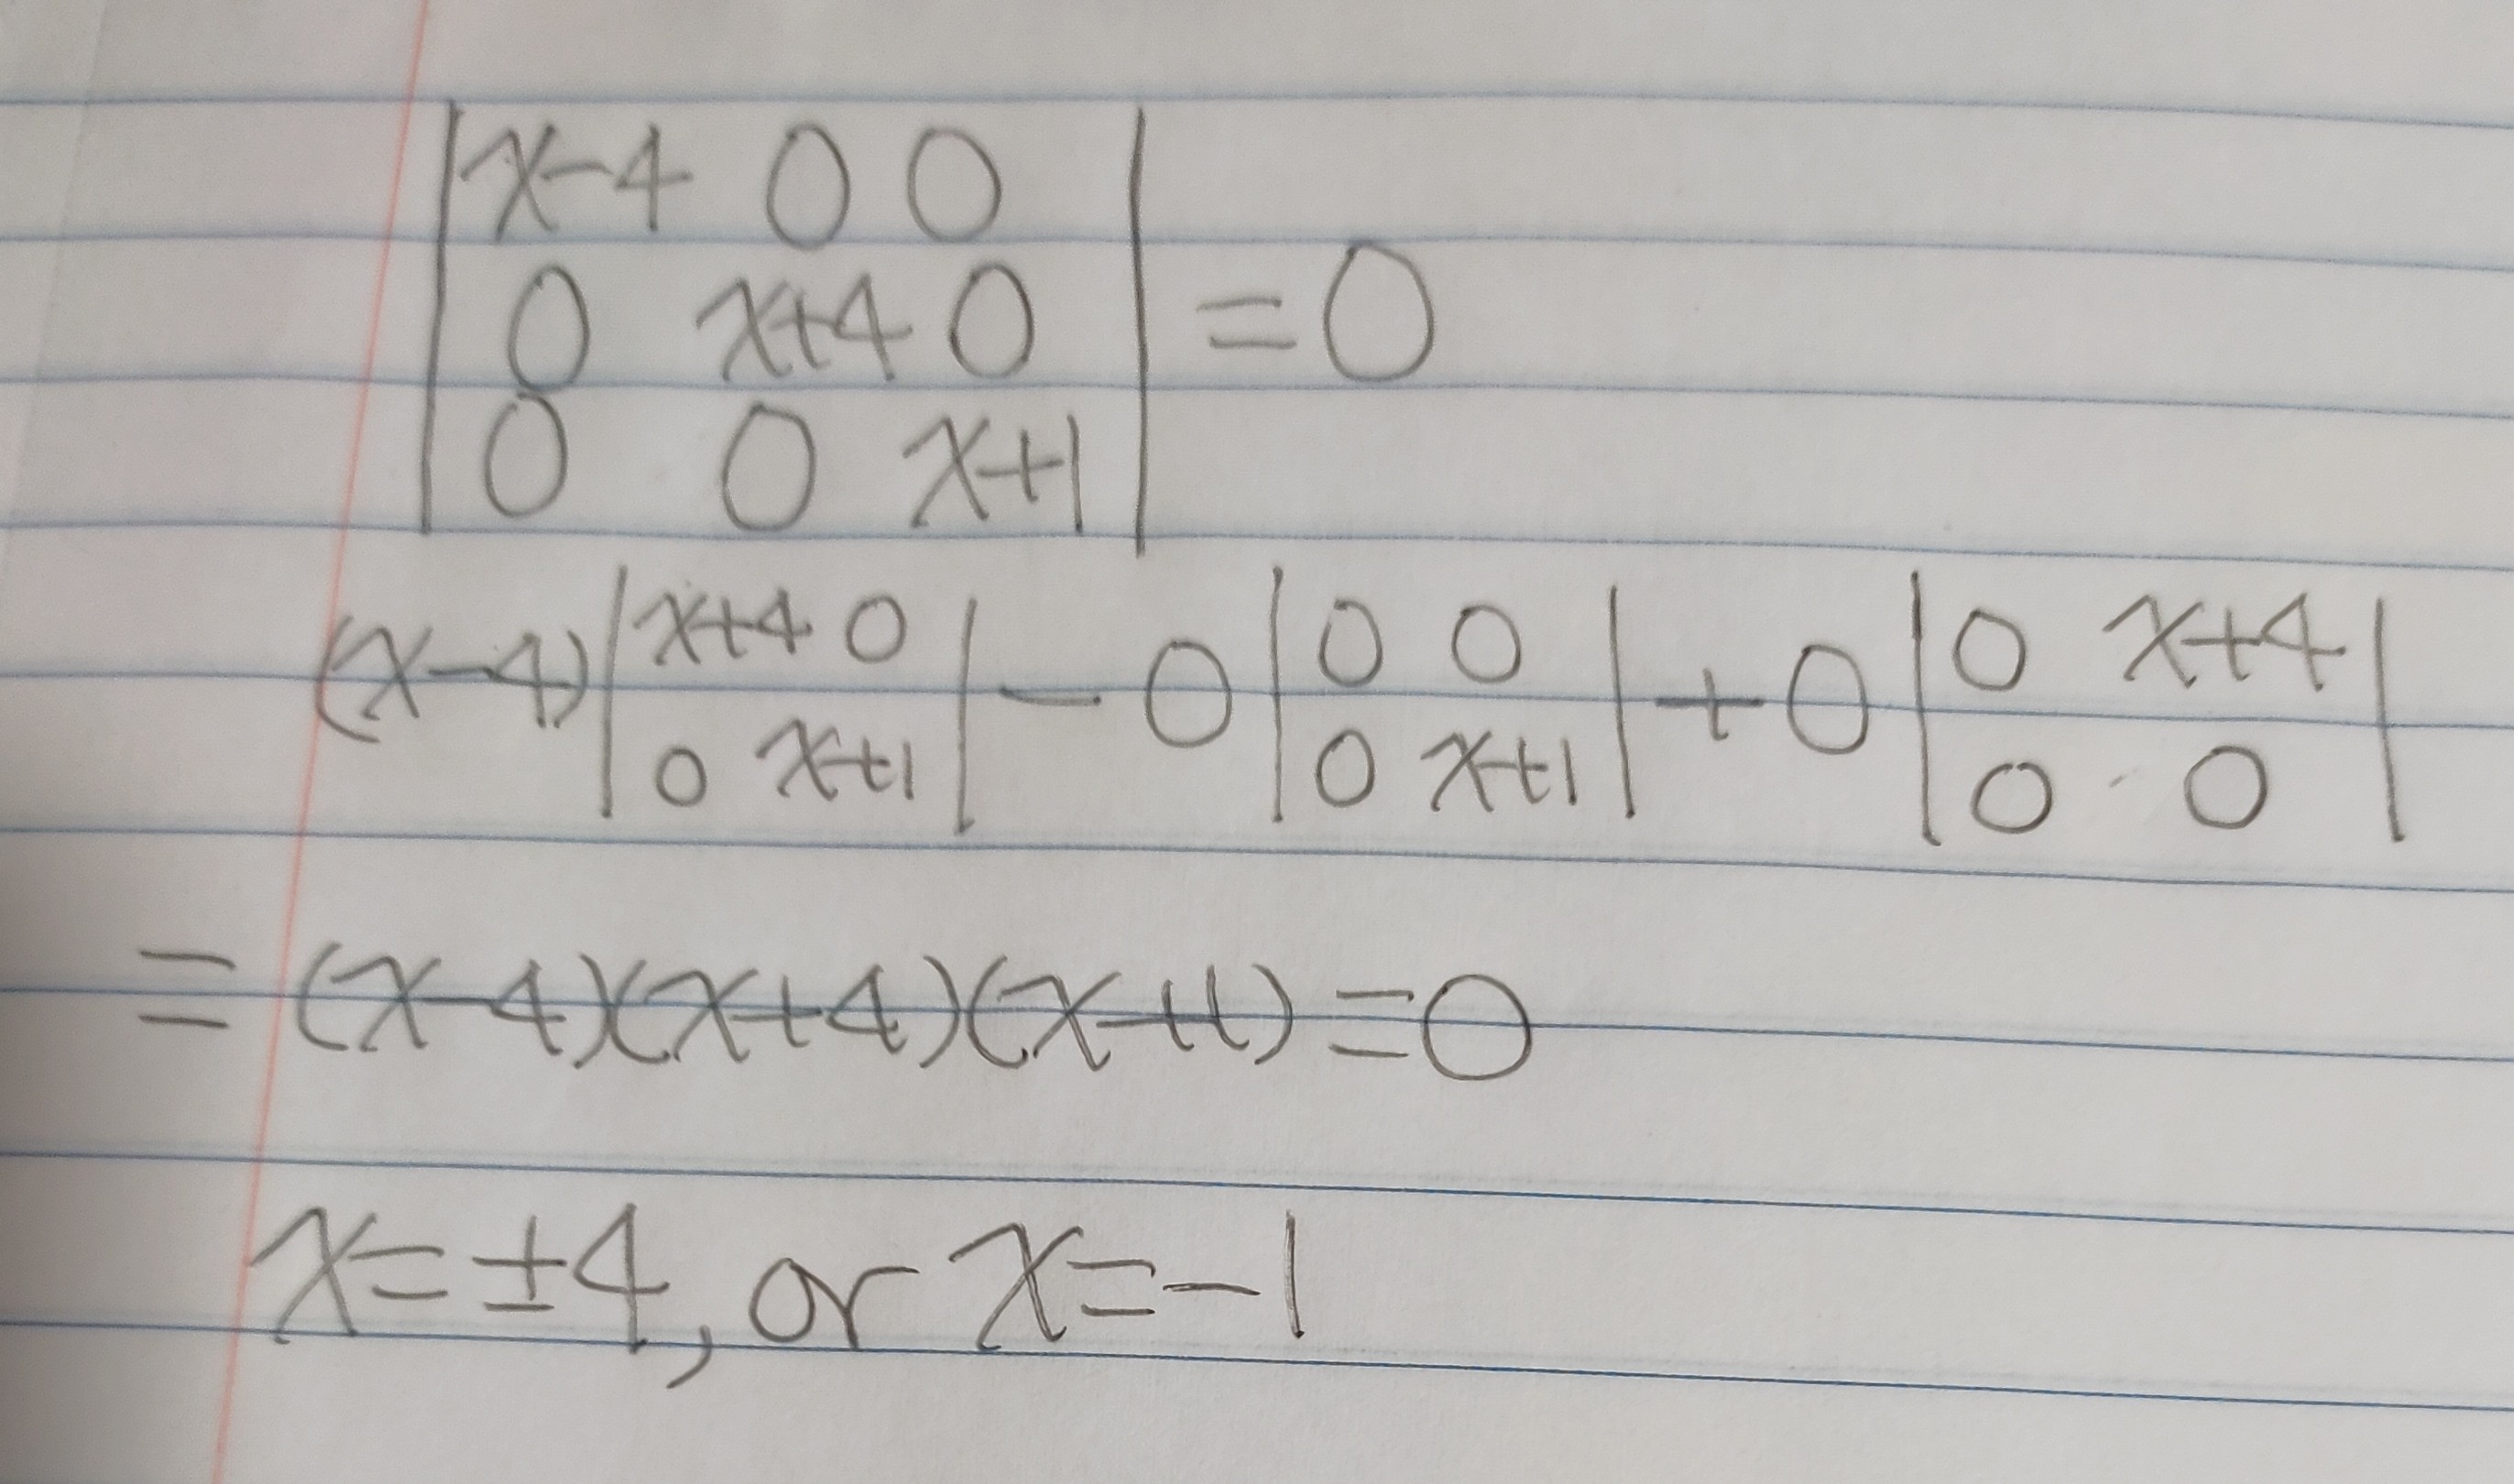 |x-4 0 0|
|0 x+4 0| =0
|0 0 x+1|
(x-4)|x+4 0| -0|0 0| +0|0 x+4|
|0 x+1| |0 x+1| |0 0|
=(x-4)(x+4)(x+1)=0
x=±4, or x=-1